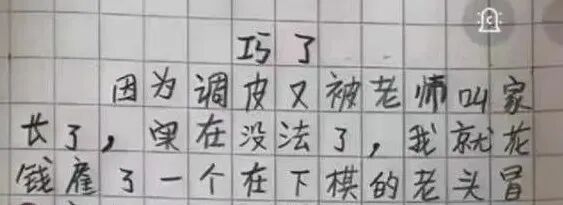 巧了
因为调皮又被老师叫家
长了，实在没法了，我就花
钱雇了一个在下棋的老头冒